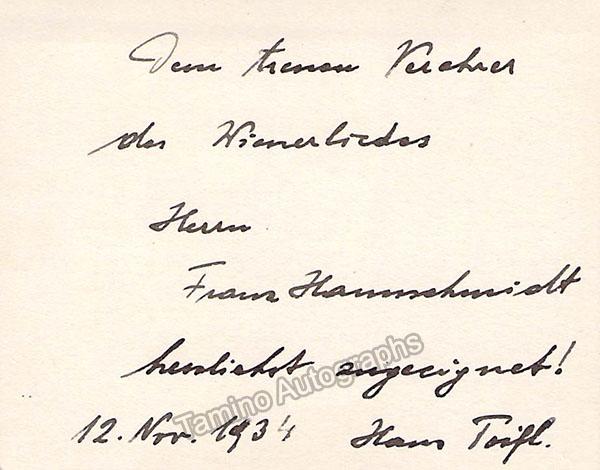 Dem treuen Verehrer
des Wienerliedes
Herrn
Franz Hammschmidt
herzlichst zugeeignet!
Tamino Autographs
12. Nov. 1934 Hans Toifl.